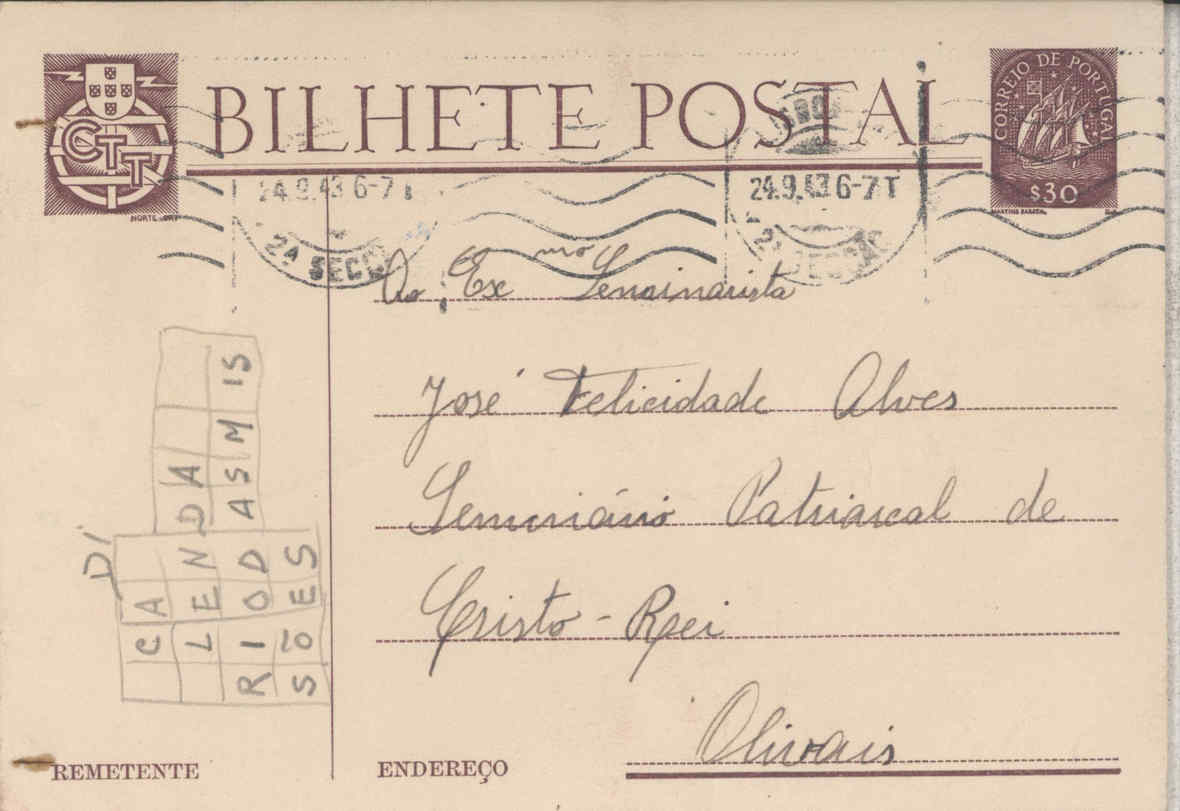 BILHETE POSTAL
CTT
CORREIO DE PORTUGAL
$30
24.9.43 6-7 T
2A SECÇ
24.9.43 6-7 T
2A SECÇÃO
Ao Exmo Seminarista
José Felicidade Alves
Seminário Patriarcal de
Cristo-Rei
Olivais
DI
CA
LENDA
RIO DAS MIS
SÕES
REMETENTE
ENDEREÇO